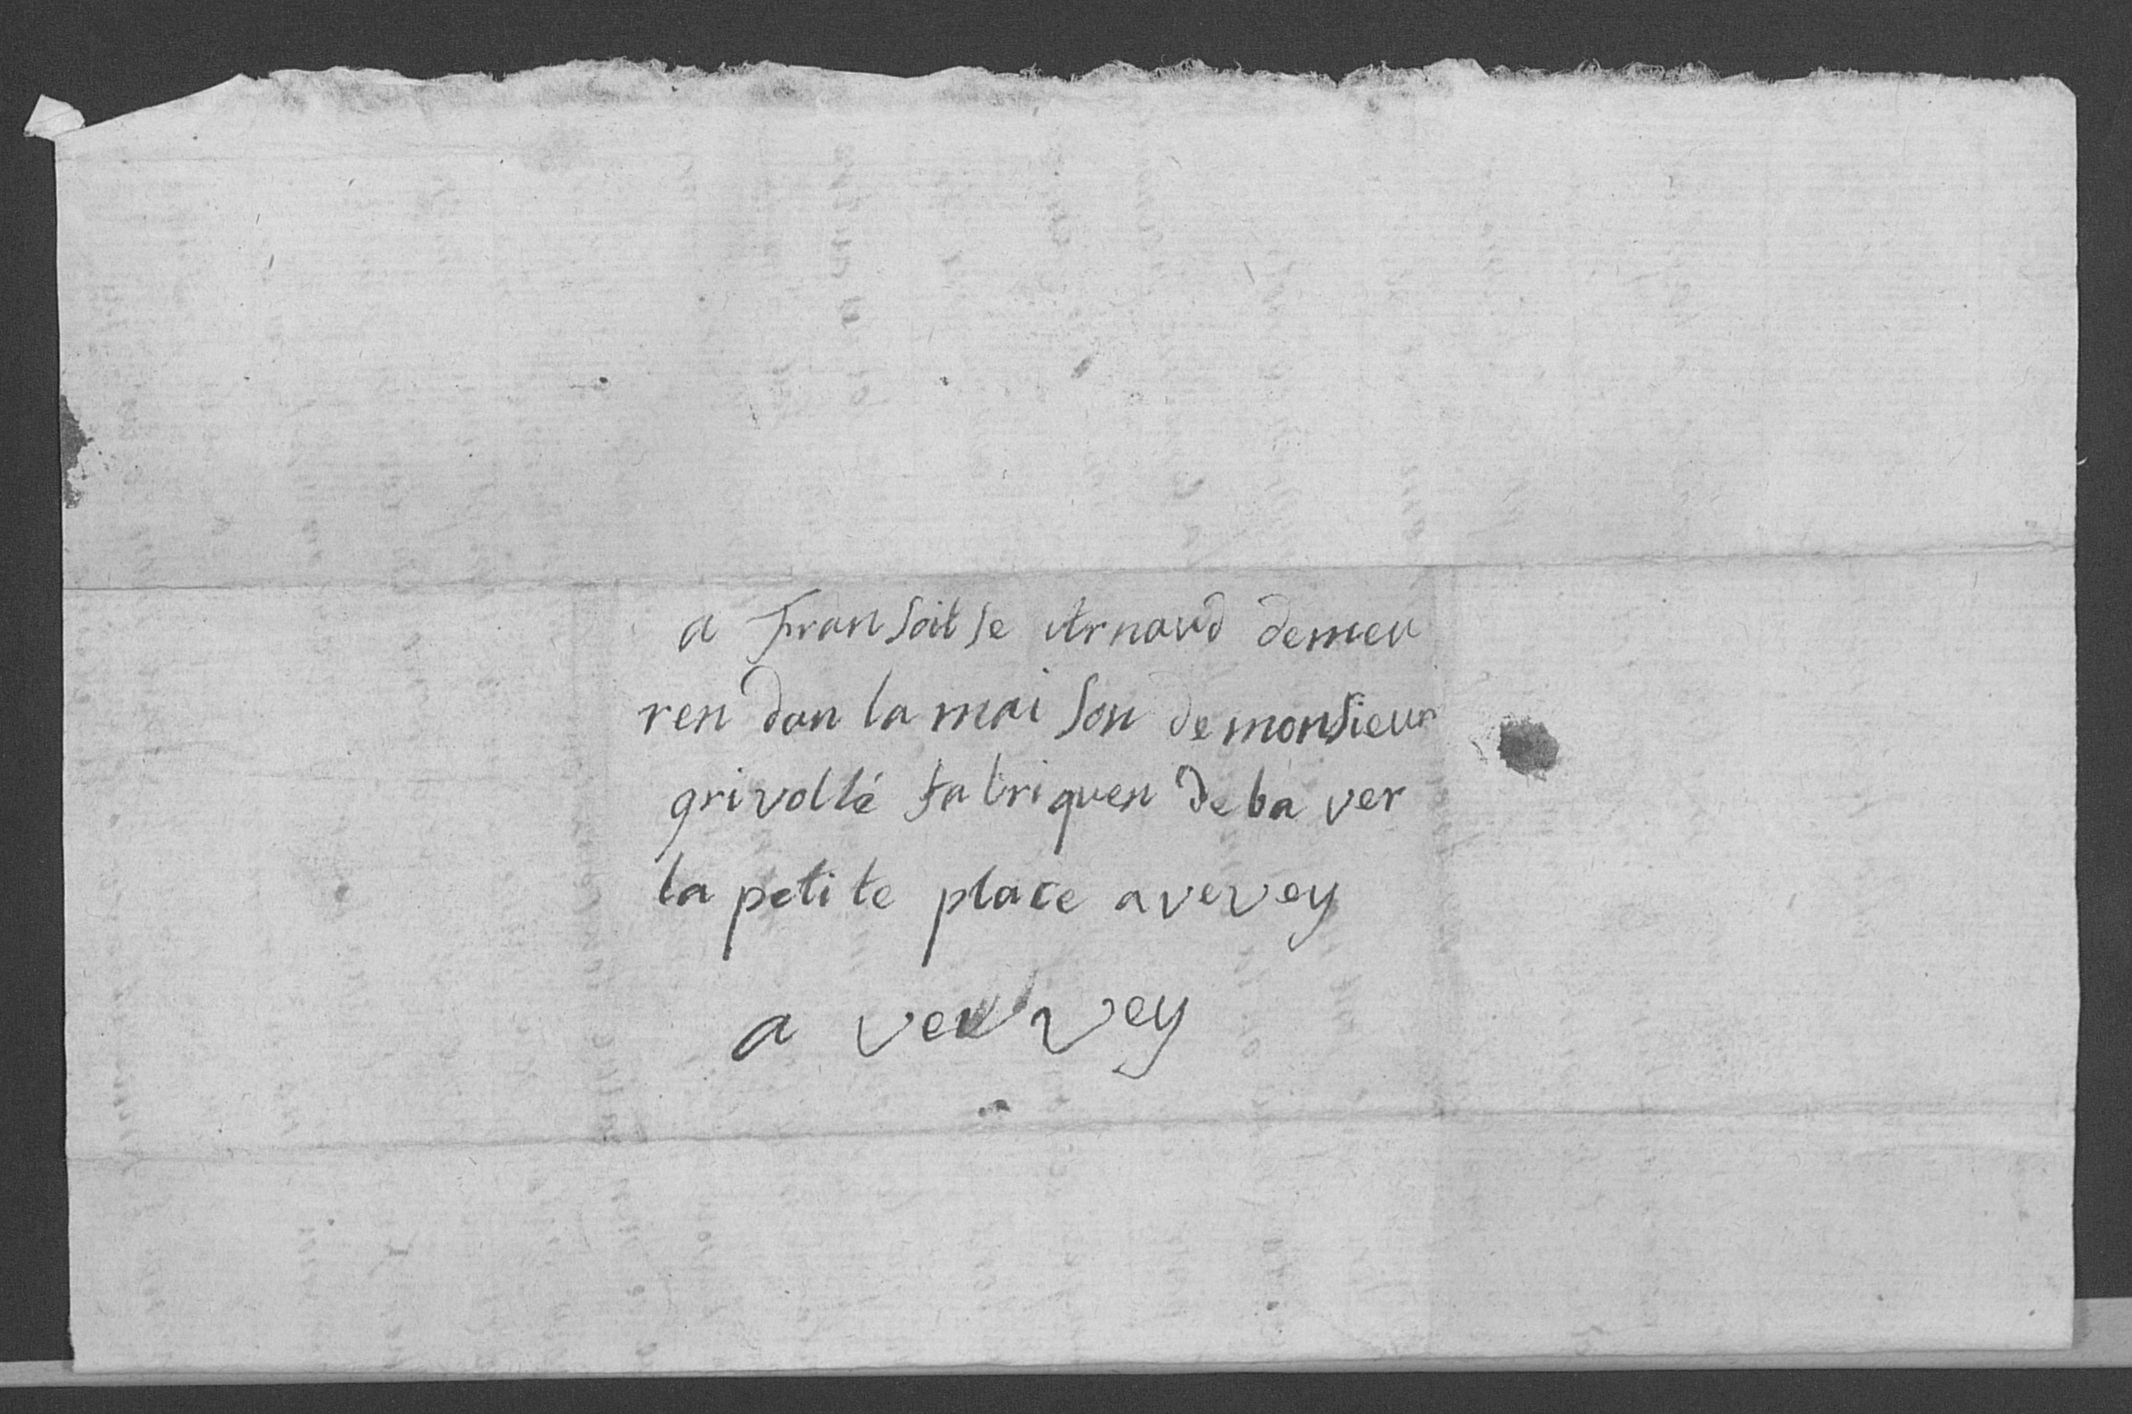 a fransoitse Arnaud demeu
ren dan la mai son de monsieur
grivollé fabriquen de ba ver
la petite place a vevey
a vevvey